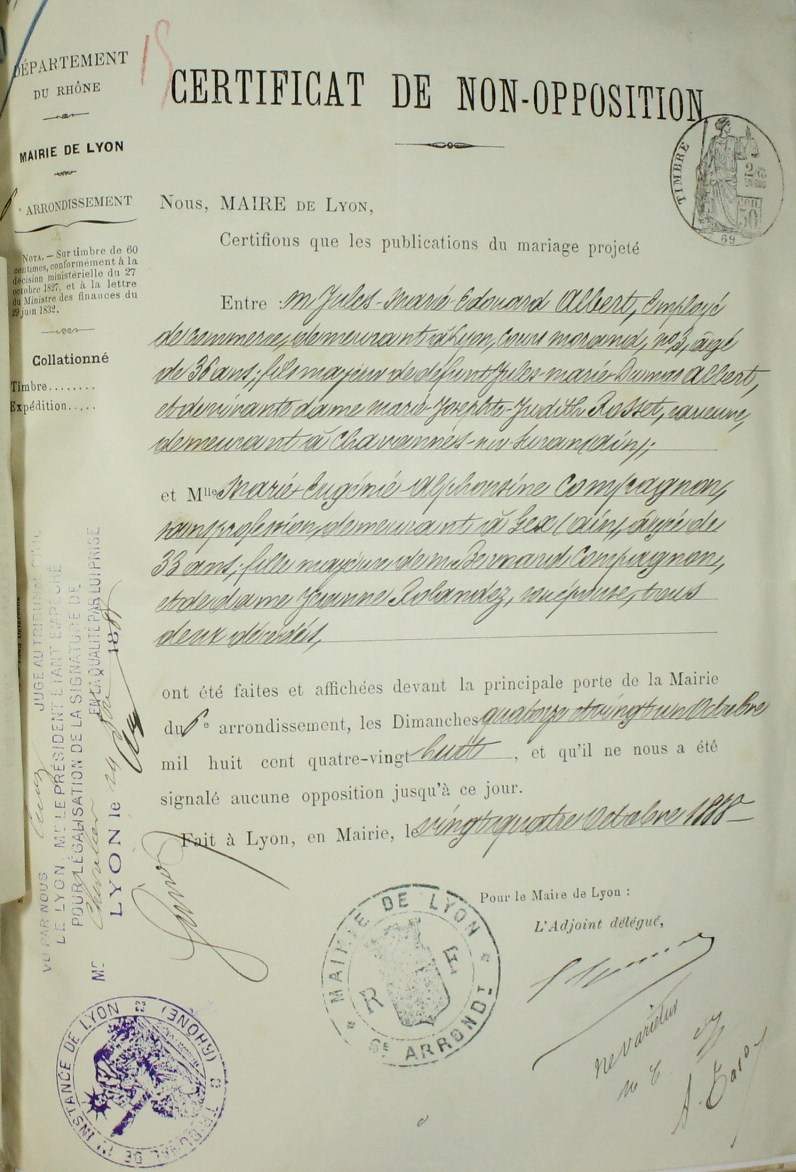 DÉPARTEMENT
DU RHÔNE
MAIRIE DE LYON
6e ARRONDISSEMENT
NOTA. — Sur timbre de 60
centimes, conformément à la
décision ministérielle du 27
octobre 1827, et à la lettre
du Ministre des finances du
29 juin 1832.
Collationné
Timbre........
Expédition.....
CERTIFICAT DE NON-OPPOSITION
TIMBRE
69
Nous, MAIRE DE LYON,
Certifions que les publications du mariage projeté
Entre : M Jules-Marie Edouard Albert, Employé
de commerce, demeurant à Lyon, cours morand, no 3, âgé
de 36 ans, fils majeur de défunt Jules-marie Albert,
et de vivante dame marie Josephte-Judith Rosset, sa veuve,
demeurant à Chavannes-sur Suran (ain),
et Mlle Marie Eugénie Alphonsine Compagnon,
sans profession, demeurant à Gex (ain), âgée de
33 ans, fille majeure de m Bernard Compagnon,
et de dame Rolandez, son épouse, tous
deux décédés,
ont été faites et affichées devant la principale porte de la Mairie
du 6e arrondissement, les Dimanches quatorze et vingt un Octobre
mil huit cent quatre-vingt huit, et qu'il ne nous a été
signalé aucune opposition jusqu'à ce jour.
Fait à Lyon, en Mairie, le vingt quatre Octobre 1888
Pour le Maire de Lyon :
L'Adjoint délégué,
MAIRIE DE LYON
R F
6E ARRONDT
ne varietur
VU PAR NOUS JUGE AU TRIBUNAL CIVIL
DE LYON, MR LE PRÉSIDENT ÉTANT EMPÊCHÉ
POUR LÉGALISATION DE LA SIGNATURE DE
MR EN LA QUALITÉ PAR LUI PRISE
LYON le 24 188
TRIBUNAL DE 1RE INSTANCE DE LYON (RHÔNE)